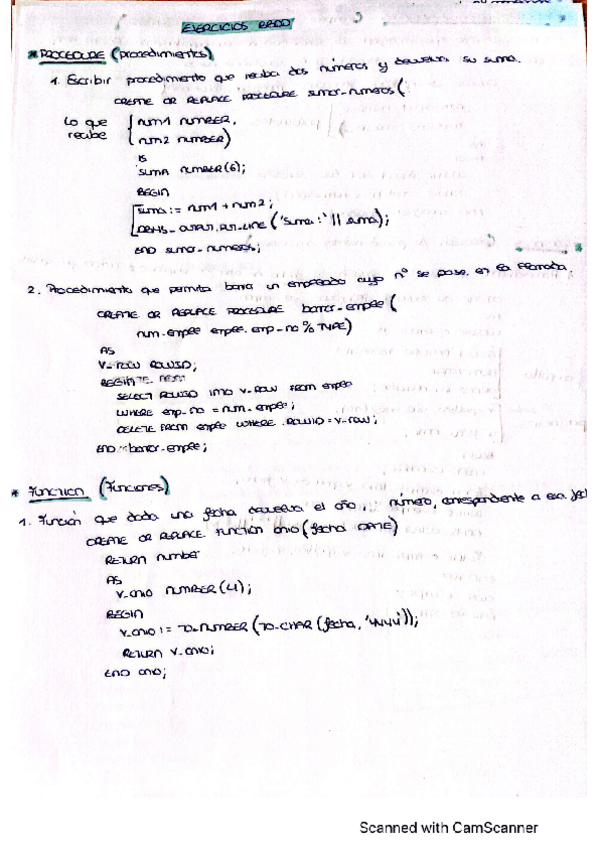 EJERCICIOS BBDD
* PROCEDURE (procedimientos)
1. Escribir procedimiento que reciba dos números y devuelva su suma.
CREATE OR REPLACE PROCEDURE sumar_numeros (
Lo que recibe
num1 NUMBER,
num2 NUMBER)
IS
SUMA NUMBER(6);
BEGIN
suma := num1 + num2;
DBMS_OUTPUT.PUT_LINE ('Suma:' || suma);
END sumar_numeros;
2. Procedimiento que permita borrar un empleado cuyo nº se pase en la llamada.
CREATE OR REPLACE PROCEDURE borrar_emple (
num_emple emple.emp_no%TYPE)
AS
V_ROW ROWID;
BEGIN
SELECT ROWID INTO V_ROW FROM emple
WHERE emp_no = num_emple;
DELETE FROM emple WHERE ROWID = V_ROW;
END borrar_emple;
* FUNCTION (Funciones)
1. Función que dada una fecha devuelva el año, número, correspondiente a esa
CREATE OR REPLACE FUNCTION anio (fecha DATE)
RETURN number
AS
V_anio NUMBER(4);
BEGIN
V_anio := TO_NUMBER (TO_CHAR (fecha, 'YYYY'));
RETURN V_anio;
END anio;
Scanned with CamScanner